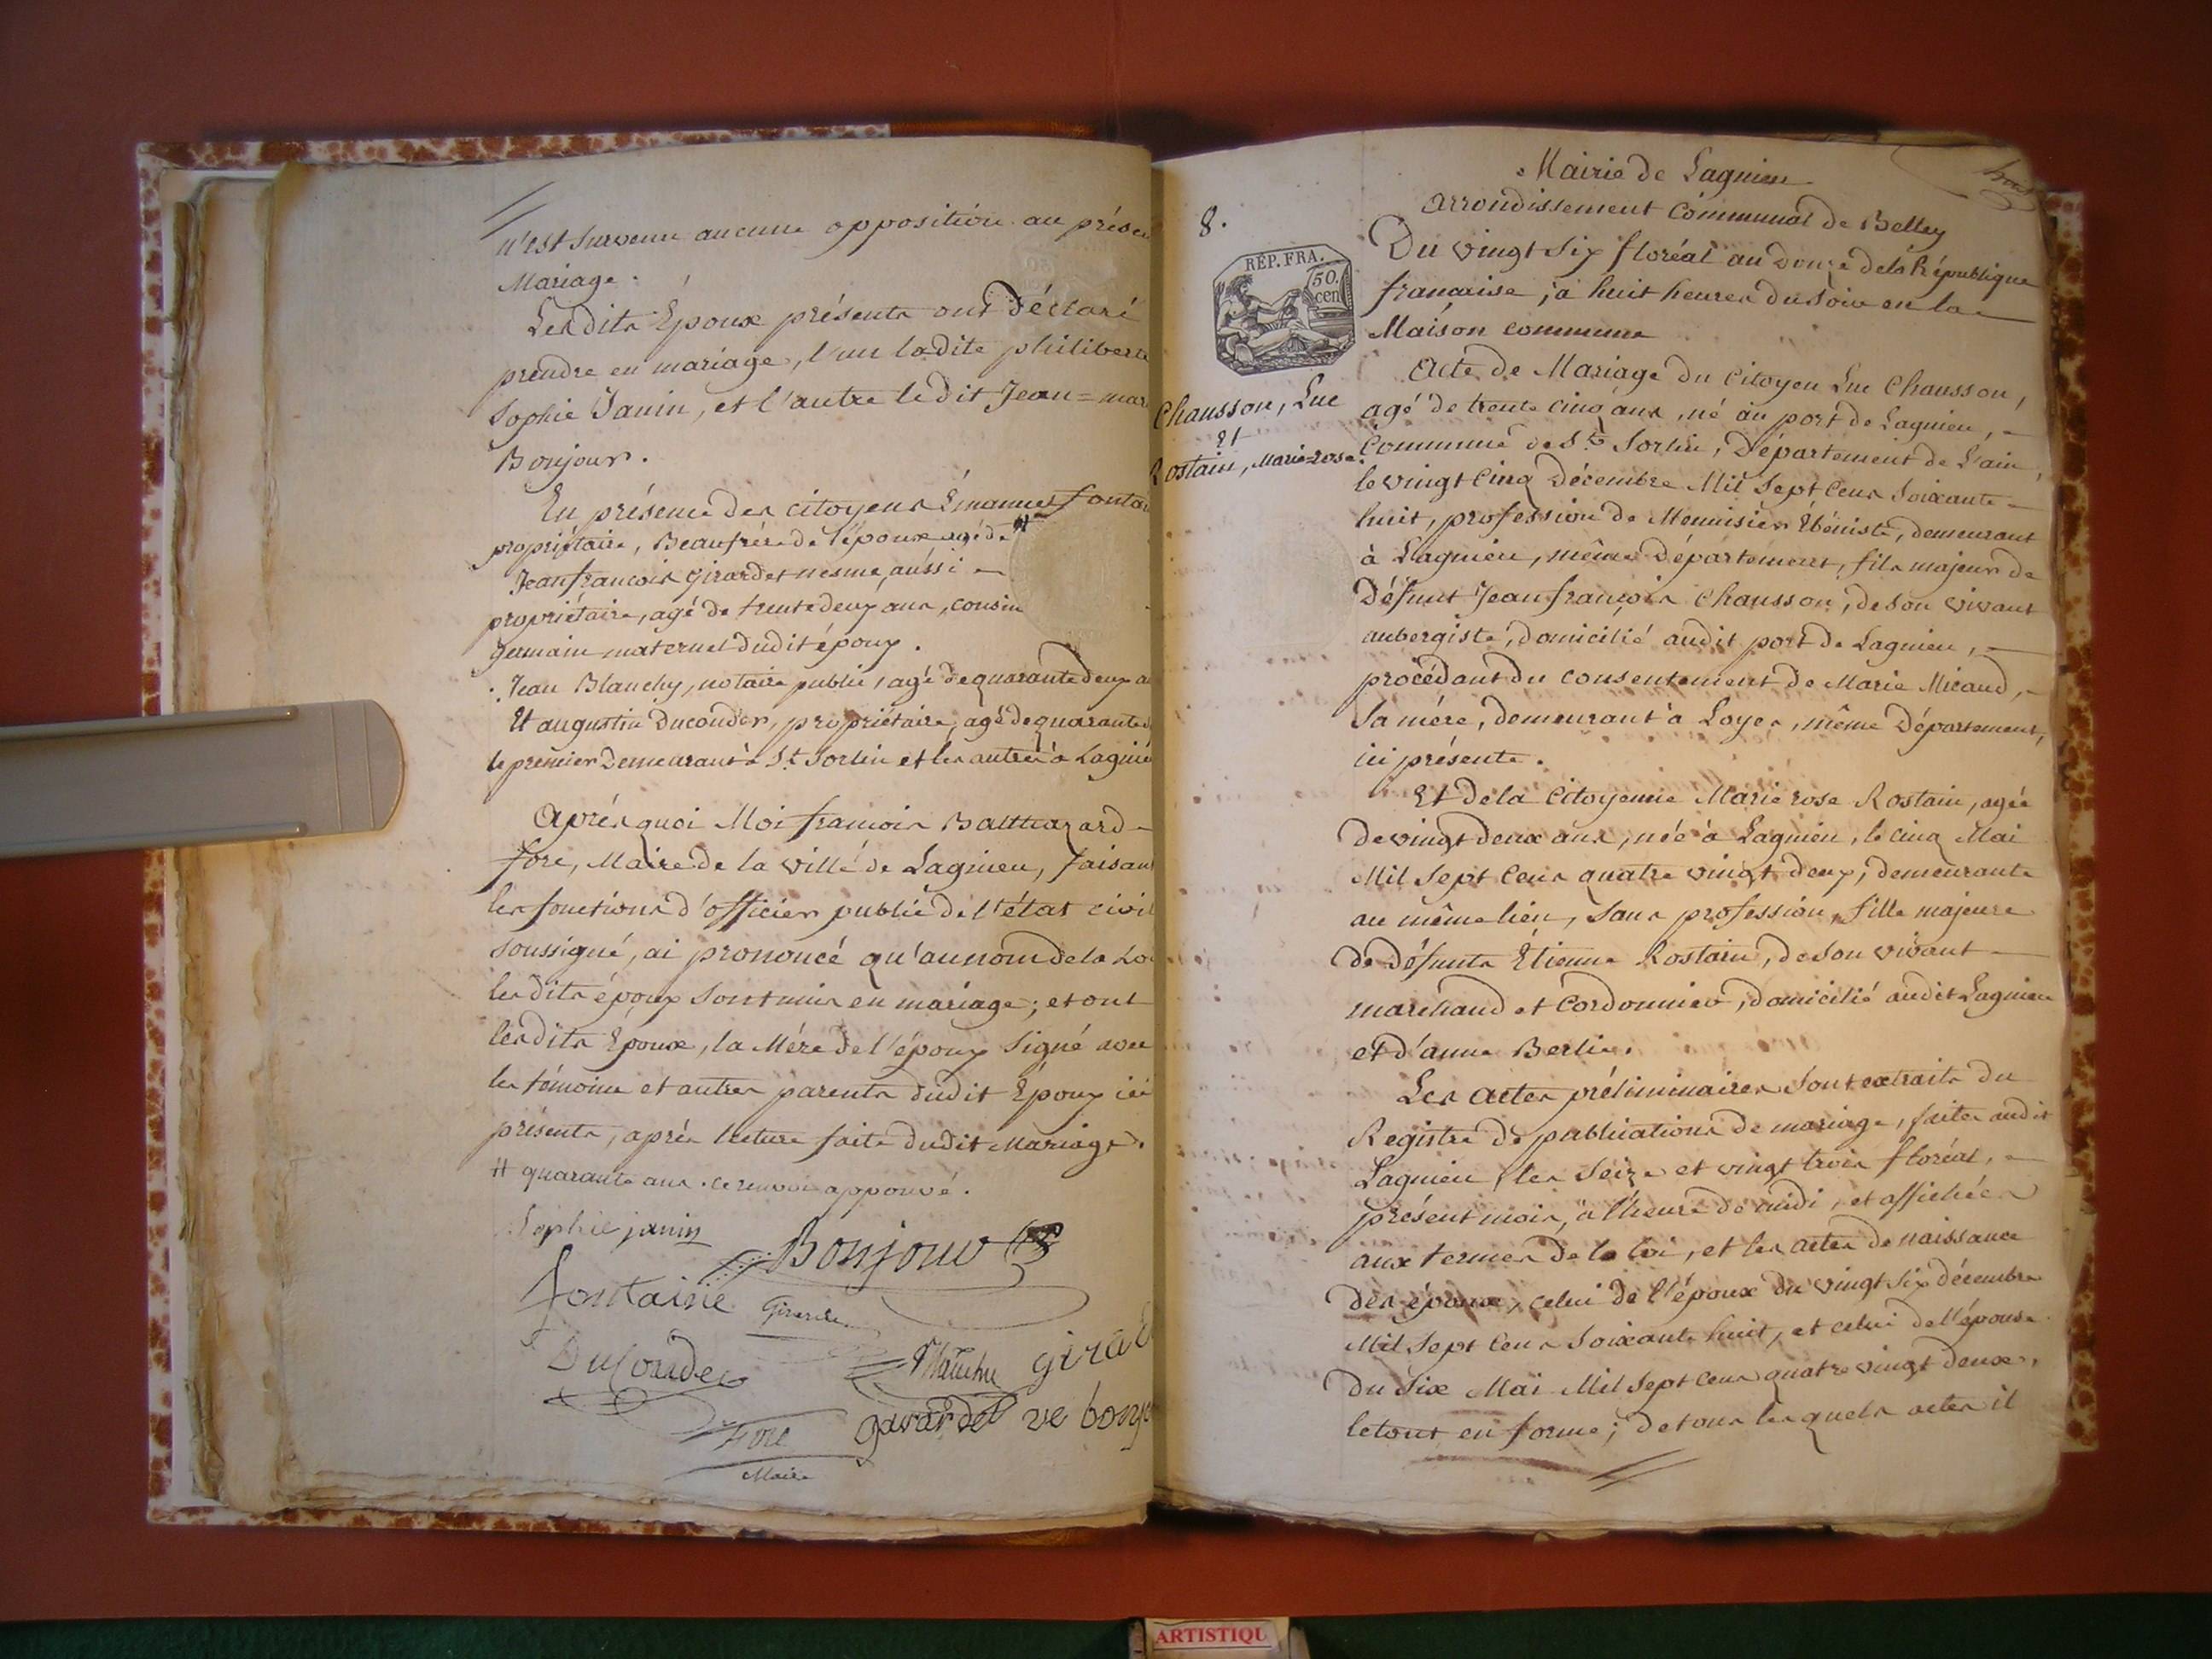 n'est survenu aucune opposition au présen
Mariage.
Lesdits Époux présents ont déclaré
prendre en mariage, l'un ladite philiberte
Sophie Janin, et l'autre ledit Jean=mar
Bonjour.
En présence des citoyens Émanuel fontai
propriétaire, Beaufrère de l'époux agé de #
Jean françois girardet nesme, aussi
propriétaire, agé de trente deux ans, cousin
germain maternel dudit époux.
Jean Blanchy, notaire public, agé de quarante deux a
Et augustin Ducouder, propriétaire, agé de quarante
le premier demeurant à St. Sorlin et les autres à Lagnie
Après quoi Moi françois Balthazard
fore, Maire de la ville de Lagnieu, faisant
les fonctions d'officier public de l'état civil
soussigné, ai prononcé qu'au nom de la Loi
lesdits époux sont unis en mariage; et ont
lesdits Époux, la Mére de l'époux signé avec
les témoins et autres parents dudit Époux ici
présents, après lecture faite dudit Mariage.
# quarante ans. ce renvoi approuvé.
Sophie janin
Bonjour
fontaine
Girarde
Ducouder
Blanchy
girad
Fore
Maire
gavardet ve bonjo
Mairie de Lagnieu
8.
arrondissement communal de Belley
Du vingt Six floréal an douze de la République
française, à huit heures du soir en la
Maison commune
RÉP. FRA.
50.
cen
Chausson, Luc
et
Rostain, Marie=rose.
Acte de Mariage du citoyen Luc Chausson,
agé de trente cinq ans, né au port de Lagnieu,
Commune de St. Sorlin, Département de L'ain,
le vingt cinq Décembre Mil Sept Cens Soixante
huit, profession de Menuisier Ébéniste, demeurant
à Lagnieu, même Département, fils majeur de
Défunt Jean françois Chausson, de son vivant
aubergiste, domicilié audit port de Lagnieu,
procédant du consentement de Marie Micaud,
Sa mére, demeurant à Loyes, même Département,
ici présente.
Et de la Citoyenne Marie rose Rostain, agée
de vingt deux ans, née à Lagnieu, le cinq Mai
Mil Sept Cens quatre vingt deux, demeurante
au même lieu, Sans profession, fille majeure
de défunts Étienne Rostain, de son vivant
marchand et Cordonnier, domicilié audit Lagnieu
et d'anne Berlie.
Les actes préliminaires sont extraits du
Registre de publications de mariage, faites audit
Lagnieu, les Seize et vingt trois floréal,
présent mois, à l'heure de midi, et affichées
aux termes de la loi, et les actes de naissance
des époux, celui de l'époux du vingt six décembre
Mil Sept Cens Soixante huit, et celui de l'épouse
du Six Mai Mil Sept Cens quatre vingt deux,
le tout en forme; de tous lesquels actes il
ARTISTIQU